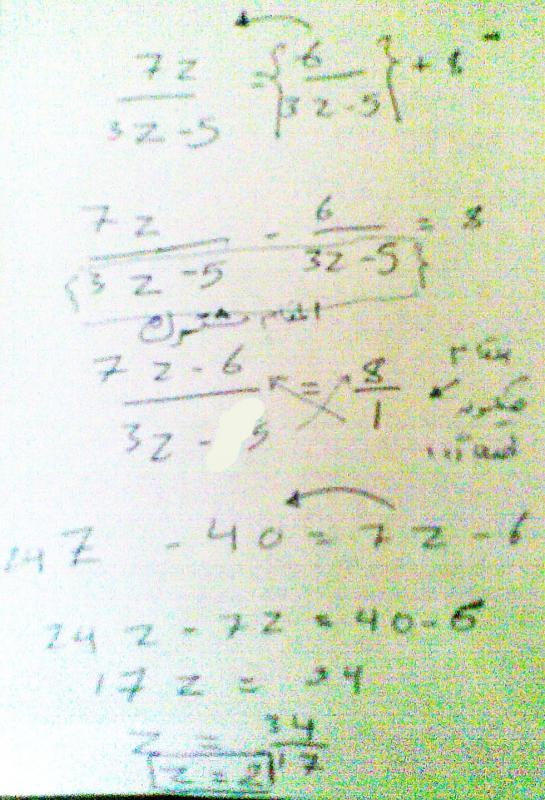 7z / 3z - 5 = { 6 / 3z - 5 } + 8
7z / {3z - 5 - 6 / 3z - 5} = 8
المقام مشترك
7z - 6 / 3z - 5 = 8 / 1
24z - 40 = 7z - 6
24z - 7z = 40 - 6
17z = 34
z = 34 / 17
z = 2